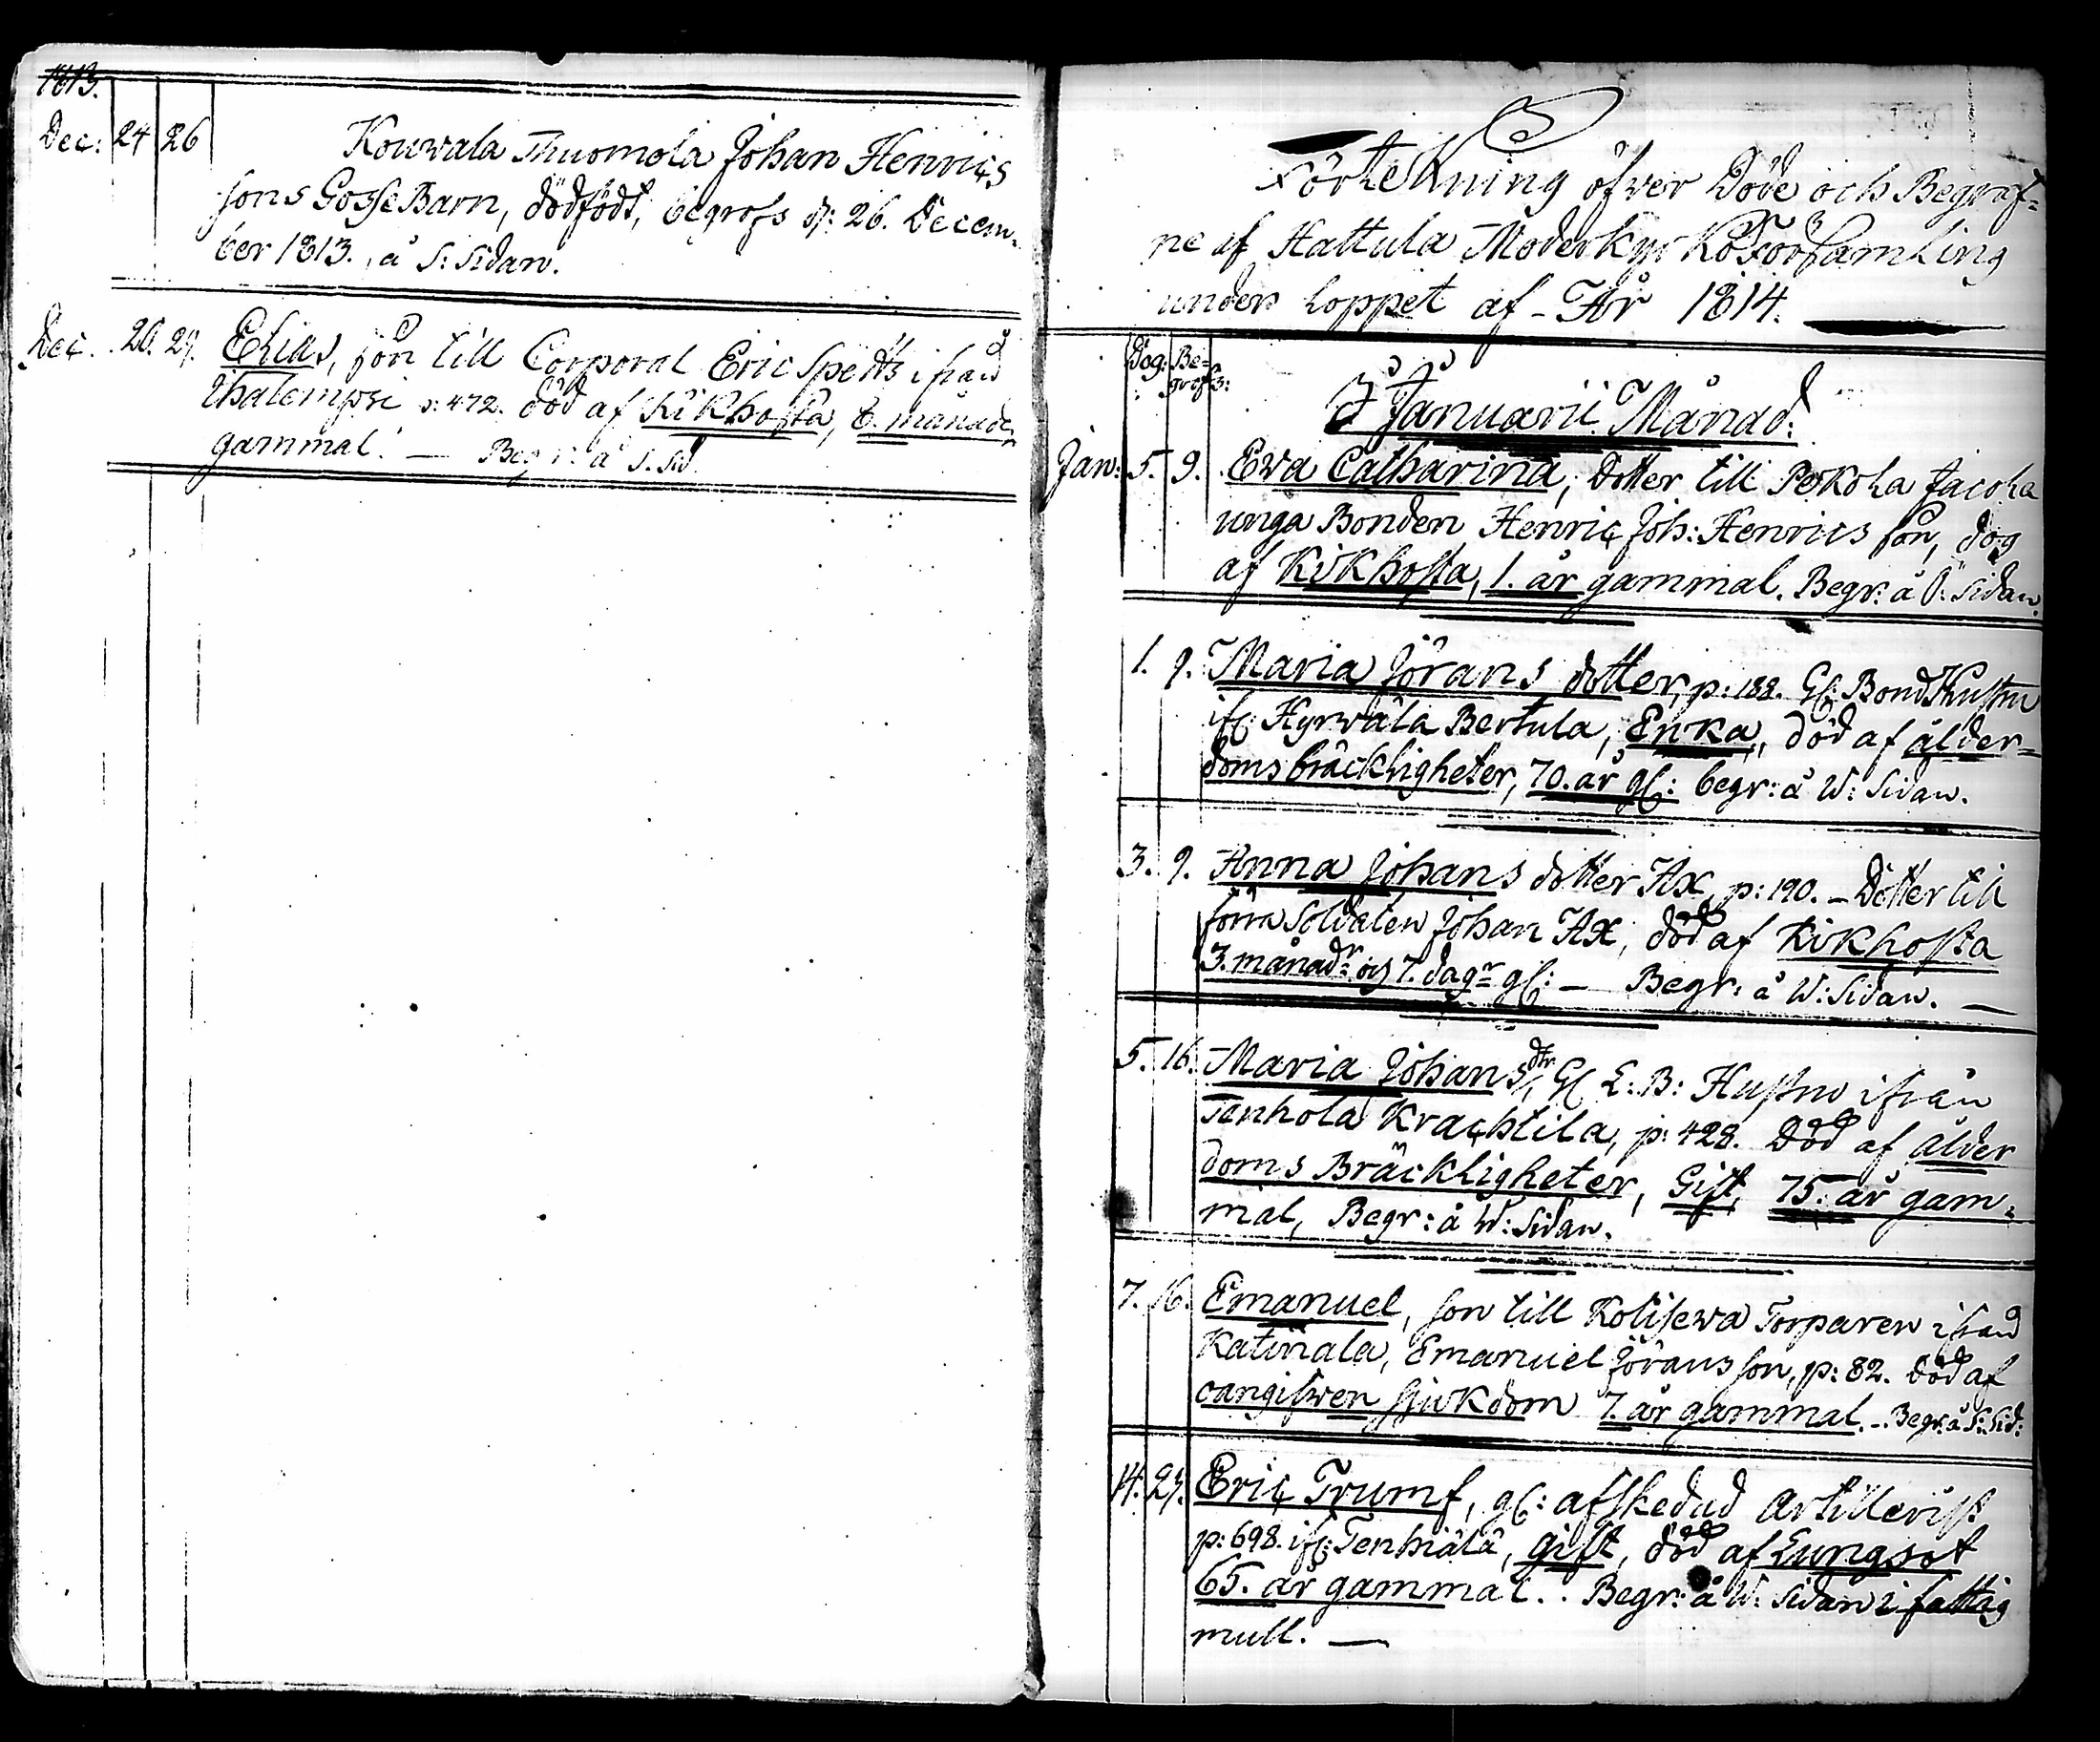 1813.
Dec: 24 26 Kouvala Thuomola Johan Henrics
sons GosseBarn, dödfödt, begrofs d: 26. Decem-
ber 1813. å S: Sidan.
Dec. 20. 29. Elias, son till Corporal Eric Spetts ifrån
Ihalempi p: 472. död af Kikhosta, 6. månader
gammal. — Begr: å S. Sid.
Förtekning öfver Döde och Begraf=
ne af Hattula Moderkyrko Församling
under loppet af År 1814.
Dog: Be-
grofs:
I Januarii Månad:
Jan: 5. 9. Ewa Catharina, Dotter till Pekola Jacola
unga Bonden Henric Joh: Henrics son, dog
af Kikhosta, 1. år gammal. Begr: å S: Sidan.
1. 9. Maria Jörans dotter, p: 188. Gl: Bond Hustru
ifr: Hyrwälä Bertula, Enka, död af ålder=
doms bräckligheter, 70. år gl: begr: å W: Sidan.
3. 9. Anna Johans dotter Ax, p: 190. – Dotter till
förra Soldaten Johan Ax, död af Kikhosta
3. månadr: och 7. dagr gl: — Begr: å W: Sidan. —
5. 16. Maria Johans dtr, Gl L: B: Hustru ifrån
Tenhola Krachtila, p: 428. Död af ålder
doms Bräckligheter, Gift, 75. år gam-
mal, Begr: å W: Sidan.
7. 16. Emanuel, son till Kolisewa Torparen ifrån
Katinala, Emanuel Jörans son, p: 82. död af
oangifwen sjukdom 7. år gammal. – Begr: å S: Sid:
14. 23. Eric Trumf, gl: afskedad Artillerist
p: 698. ifr: Tenhiälä, gift, död af Lungsot
65. år gammal. . Begr: å W: Sidan i fattig
mull. —